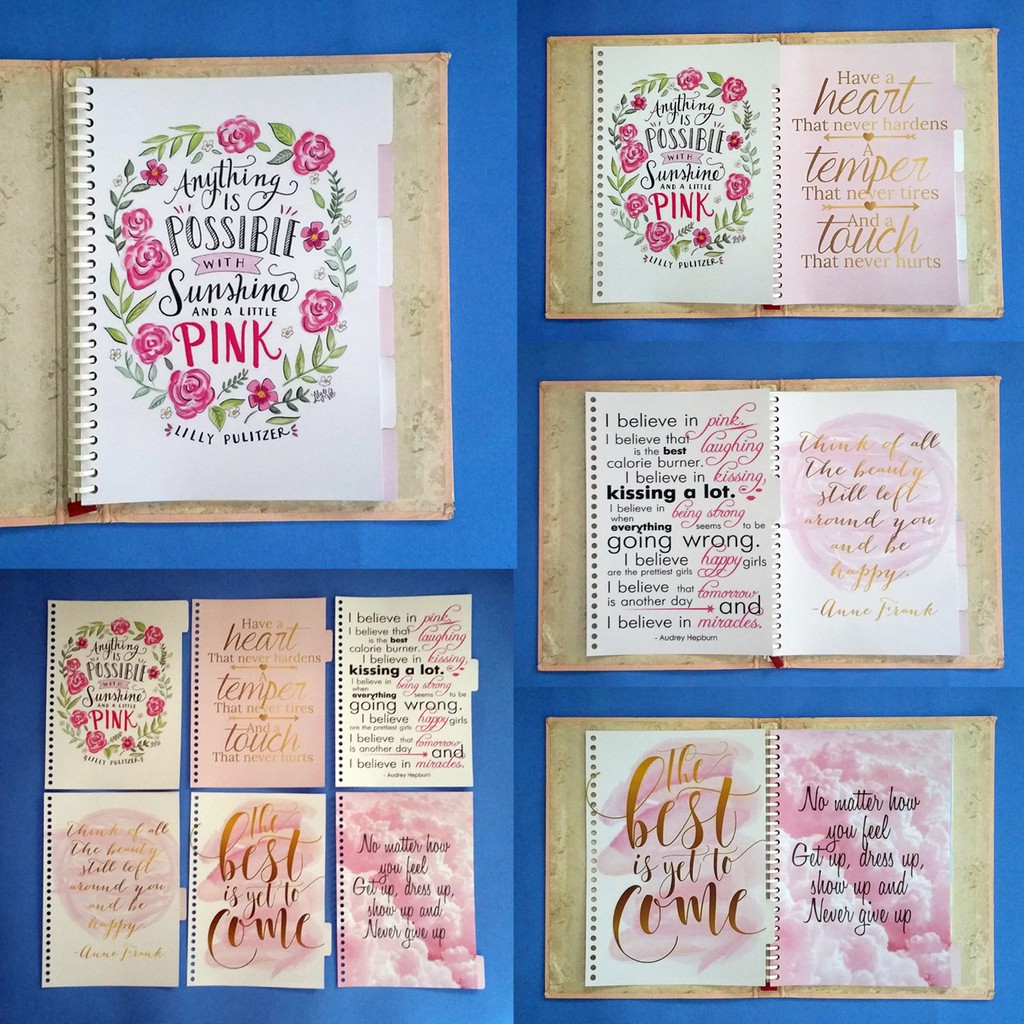 Anything
IS
POSSIBLE
WITH
Sunshine
AND A LITTLE
PINK
LILLY PULITZER
Anything
IS
POSSIBLE
WITH
Sunshine
AND A LITTLE
PINK
LILLY PULITZER
Have a
heart
That never hardens
A
temper
That never tires
And a
touch
That never hurts
I believe in pink.
I believe that laughing
is the best
calorie burner.
I believe in kissing,
kissing a lot.
I believe in being strong
when
everything seems to be
going wrong.
I believe happy girls
are the prettiest girls
I believe that tomorrow
is another day and
I believe in miracles.
- Audrey Hepburn
Think of all
the beauty
still left
around you
and be
happy.
-Anne Frank
Anything
IS
POSSIBLE
WITH
Sunshine
AND A LITTLE
PINK
LILLY PULITZER
Have a
heart
That never hardens
A
temper
That never tires
And a
touch
That never hurts
I believe in pink.
I believe that laughing
is the best
calorie burner.
I believe in kissing,
kissing a lot.
I believe in being strong
when
everything seems to be
going wrong.
I believe happy girls
are the prettiest girls
I believe that tomorrow
is another day and
I believe in miracles.
- Audrey Hepburn
Think of all
the beauty
still left
around you
and be
happy.
-Anne Frank
The
best
is yet to
come
No matter how
you feel
Get up, dress up,
show up and
Never give up
The
best
is yet to
come
No matter how
you feel
Get up, dress up,
show up and
Never give up